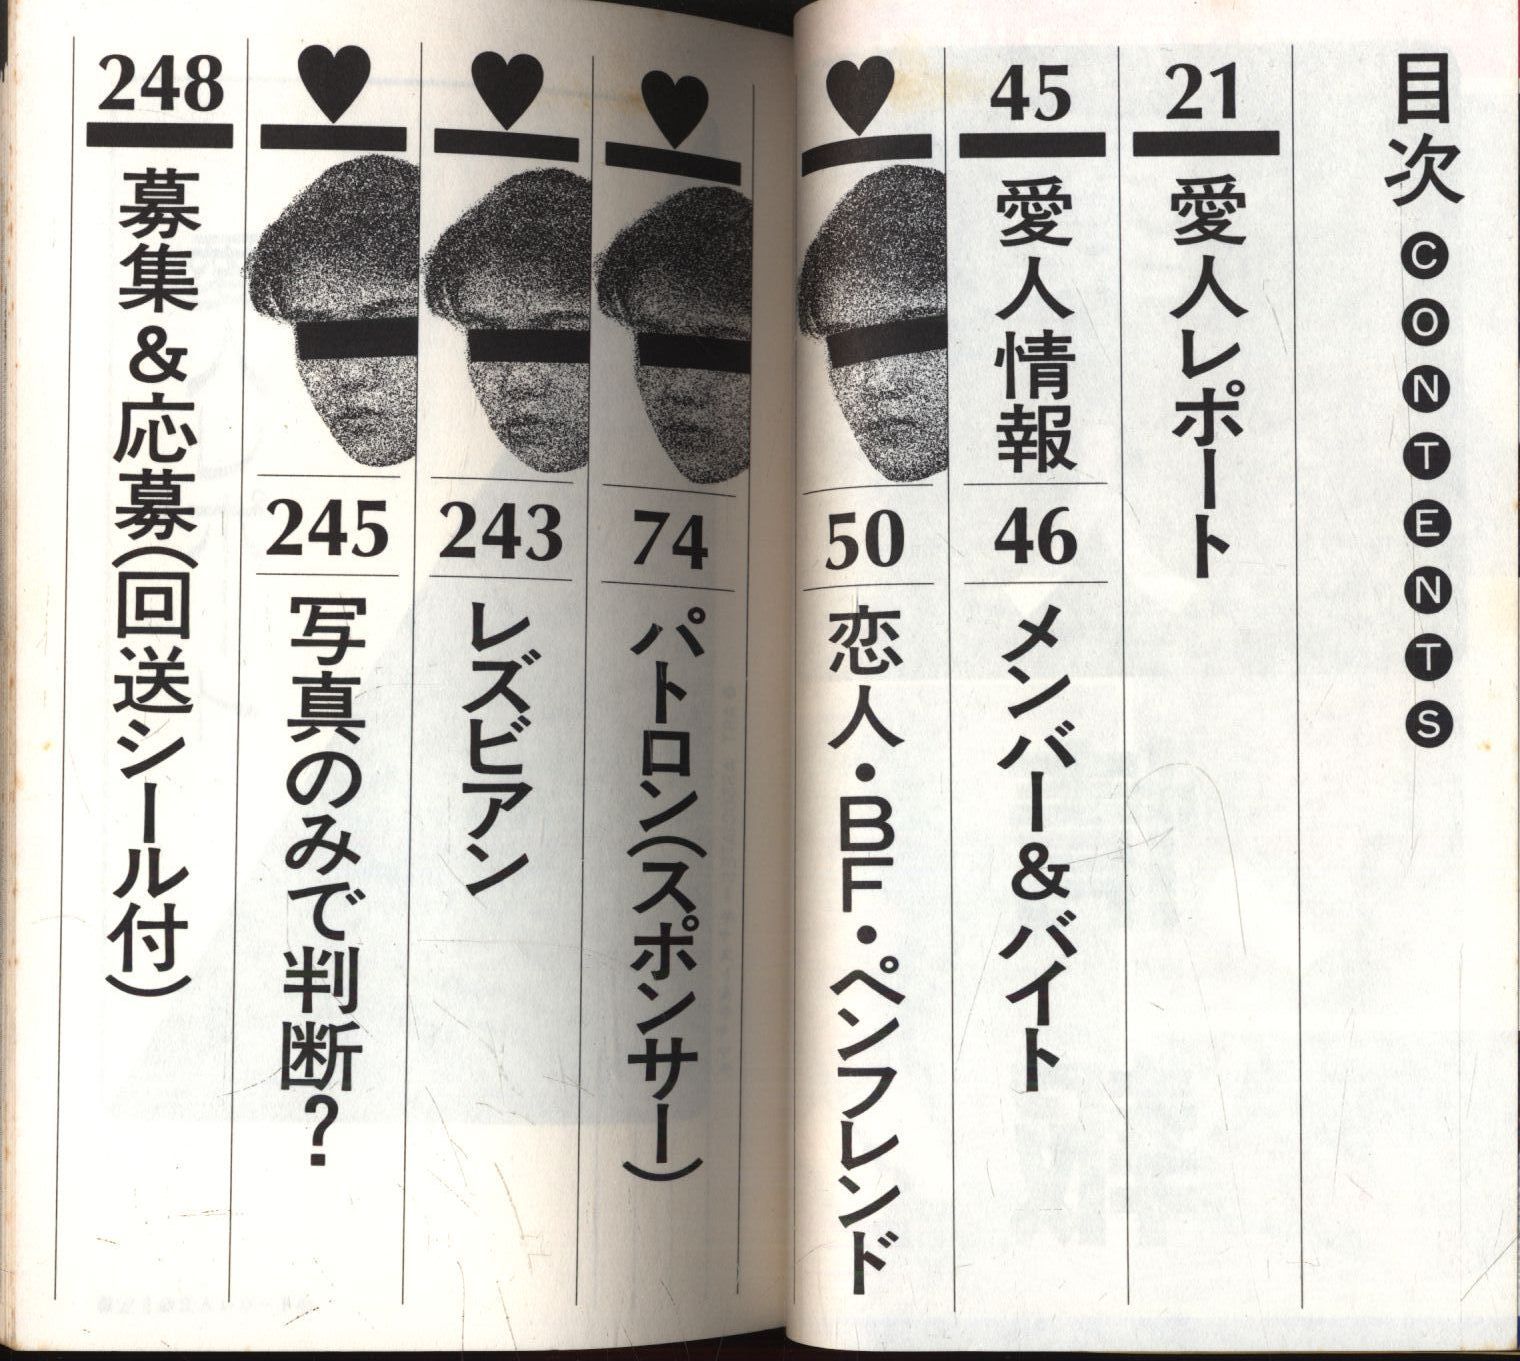 目次 CONTENTS
21
愛人レポート
45
愛人情報
46
メンバー&バイト
50
恋人・BF・ペンフレンド
74
パトロン(スポンサー)
243
レズビアン
245
写真のみで判断?
248
募集&応募(回送シール付)